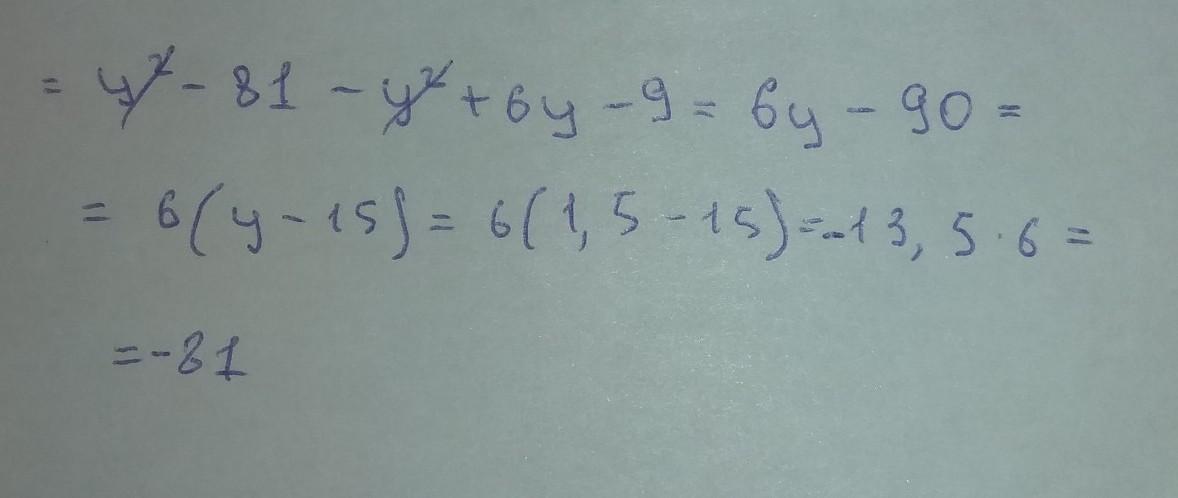 = y² - 81 - y² + 6y - 9 = 6y - 90 =
= 6(y - 15) = 6(1,5 - 15) = -13,5 · 6 =
= -81